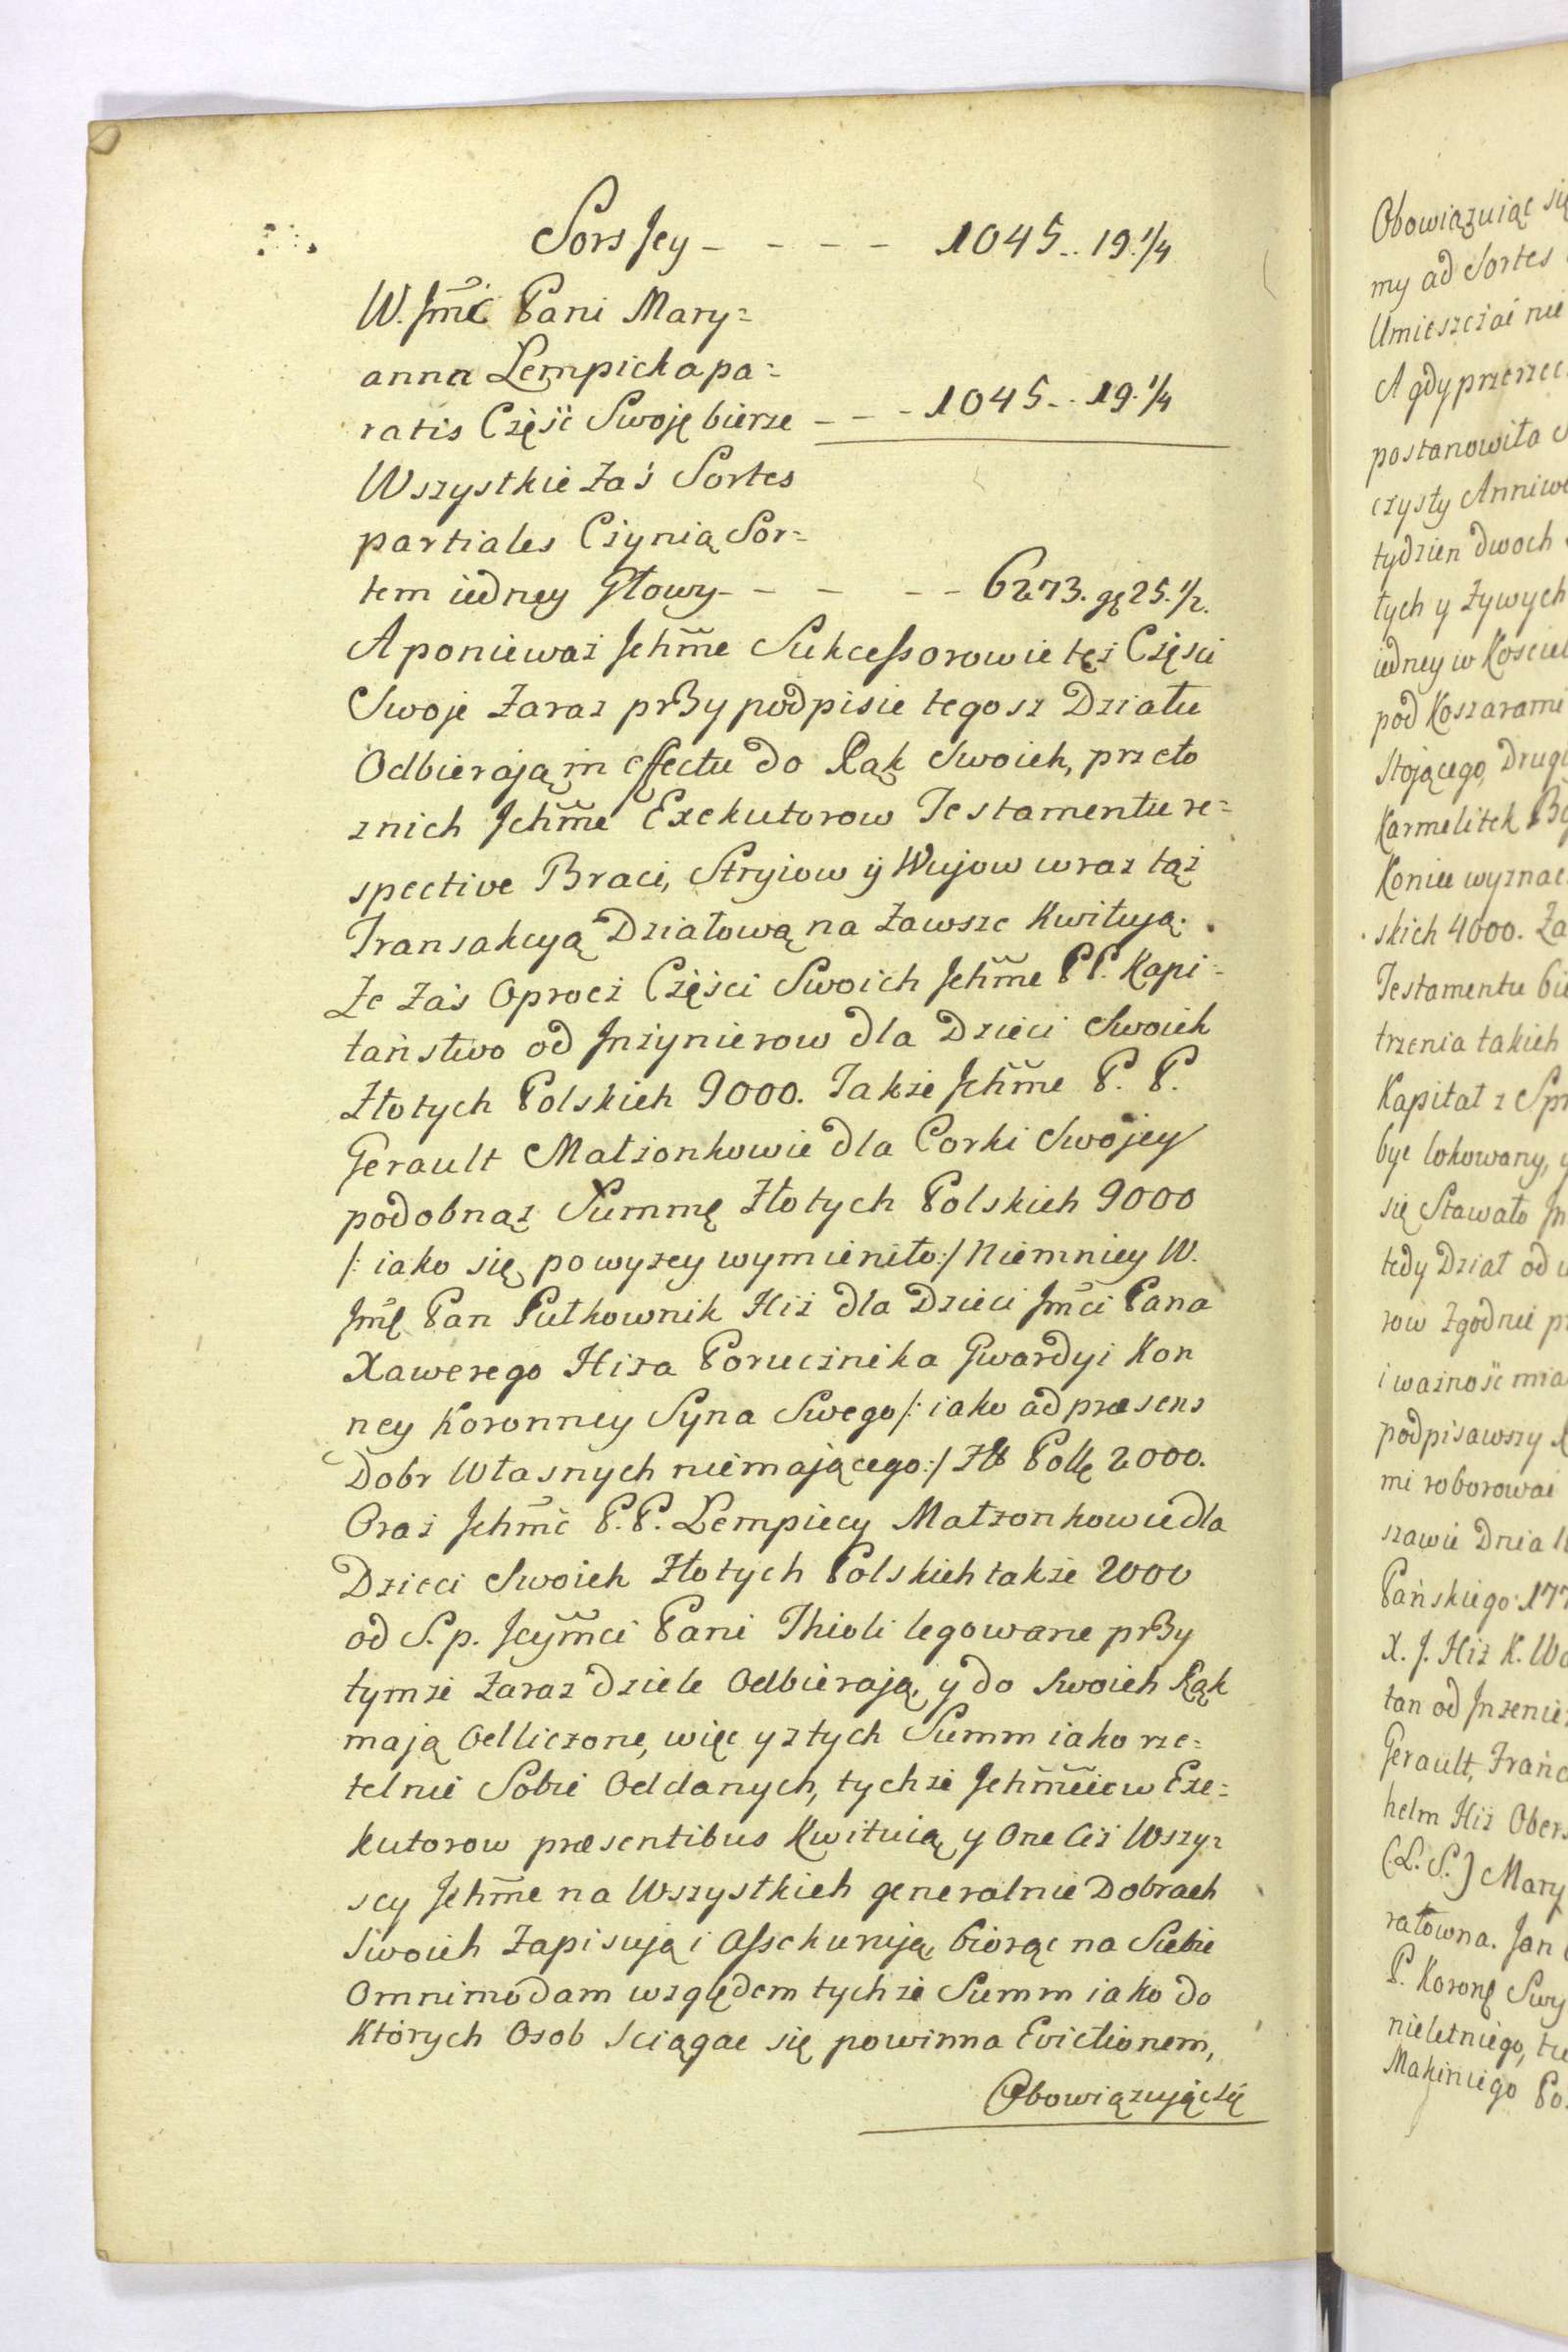 Sors Jey - - - - 1045.. 19.1/4
W. Jmć Pani Mary=
anna Lempicka pa=
ratis Część Swoję bierze - - - 1045.. 19.1/4
Wszystkie zaś Sortes
partiales Czynią Sor=
tem iedney Głowy - - - - - 6273. gę 25.1/2.
A ponieważ Jchm̃e Sukcessorowie też Części
Swoje zaraz przy podpisie tegosz Działu
Odbierają in effectu do Rąk Swoich, przeto
znich Jchm̃e Exekutorow Testamentu re=
spective Braci, Stryiow ÿ Wujow wraz tąż
Transakcyą Działową na zawsze kwitują.
Ze zaś Oprocż Części Swoich Jchm̃e P P. Kapi=
taństwo od Jnżynierow dla Dzieci Swoich
Złotych Polskich 9000. Także Jchm̃e P. P.
Gerault Małżonkowie dla Corki Swojey
podobnąż Summę Złotych Polskich 9000
/: iako się powyżey wymieniło:/ Niemniey W.
Jmć Pan Pułkownik Hiż dla Dzieci Jm̃ci Pana
Xawerego Hiża Porucznika Gwardyi Kon
ney Koronney Syna Swego /: iako ad præsens
Dobr Własnych niemającego:/ Zł Polł 2000.
Oraz Jchm̃ć P. P. Lempiccy Małżonkowie dla
Dzieci Swoich Złotych Polskich także 2000
od S. p. Jeym̃ci Pani Thioli legowane przy
tymże zaraz dziele Odbierają, y do Swoich Rąk
mają Odliczone, więc y ztych Summ iako rze=
telnie Sobie Oddanych, tychże Jchm̃ciow Exe=
kutorow præsentibus kwituią y One Ciż Wszy=
scy Jchm̃e na Wszystkich generalnie Dobrach
Swoich zapisują i Assekurują, biorąc na Siebie
Omnimodam względem tychże Summ iako do
Których Osob sciągac się powinna Evictionem,
Obowiązując się
Obowiązuiąc się
my ad Sortes
Umieszczać nie
A gdy przerzec
postanowiła
czysty Anniwe
tydzien dwoch
łych y żywych
iedney w Kosciel
pod Koszarami
Stojącego, Drugi
Karmelitek
Koniu wyznac
skich 4000. Za
Testamentu
trzenia takich
Kapitał z Spr
byc lokowany, y
się Stawało
tedy Dział od
row zgodnie pr
i ważność mia
podpisawszy
mi roborować
szawie Dnia
Pańskiego 177
X. J. Hiż K. Wa
tan od Jnzenie
Gerault, Franc
helm Hiż Obers
(L. S.) Mary
ratowna. Jan
P. Koronę Swy
nieletniego, tu
Makiniego